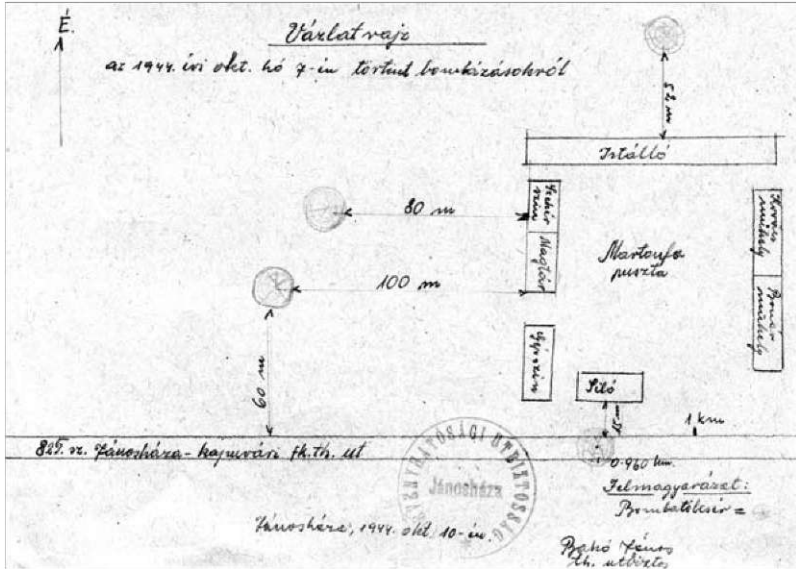 É.
Vázlatrajz
az 1944. évi okt. hó 7-én történt bombázásokról
52 m
Istálló
80 m
Szekér
szín
Magtár
100 m
Martonfa
puszta
Kovács
műhely
Bognár
műhely
60 m
Gépszín
Siló
15
1 km
825. sz. Jánosháza-kapuvári tk. th. út
0.960 km.
Jelmagyarázat:
Bombatölcsér =
TÖRVÉNYHATÓSÁGI ÚTBIZTOSSÁG
Jánosháza
Jánosháza, 1944. okt 10-én.
Bahó János
th. útbiztos